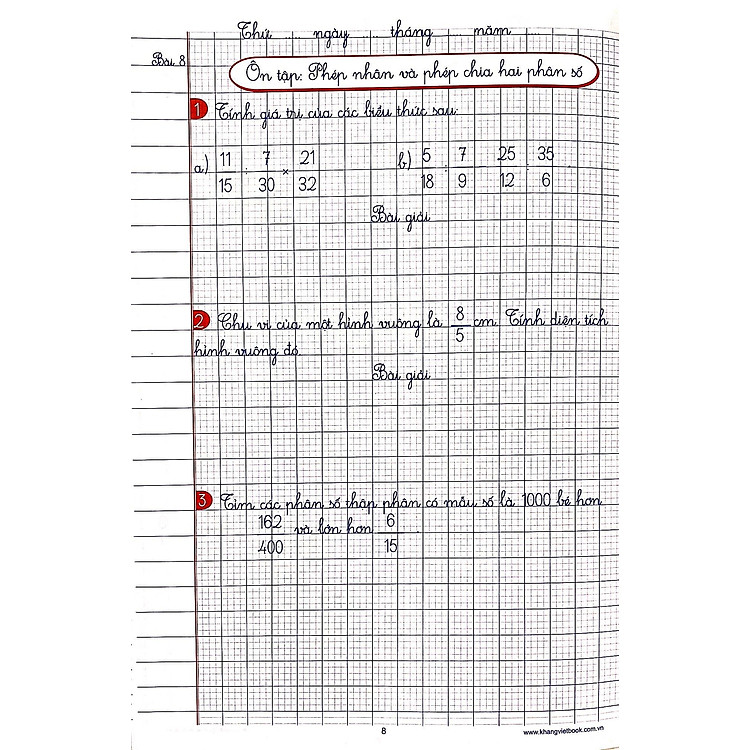 Thứ ..... ngày ..... tháng ..... năm .....
Bài 8
Ôn tập: Phép nhân và phép chia hai phân số
1 Tính giá trị của các biểu thức sau:
a) 11/15 : 7/30 × 21/32 b) 5/18 : 7/9 : 25/12 : 35/6
Bài giải
2 Chu vi của một hình vuông là 8/5 cm. Tính diện tích
hình vuông đó.
Bài giải
3 Tìm các phân số thập phân có mẫu số là 1000 bé hơn
162/400 và lớn hơn 6/15.
8
www.khangvietbook.com.vn